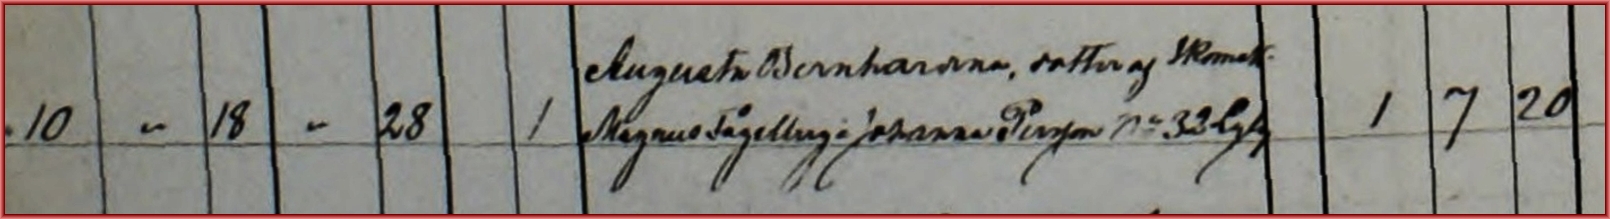 Augusta Bernhardina, dotter af Skomak.
10 " 18 " 28 1 Magnus Fågelberg & Johanna Persson No 32 1 7 20